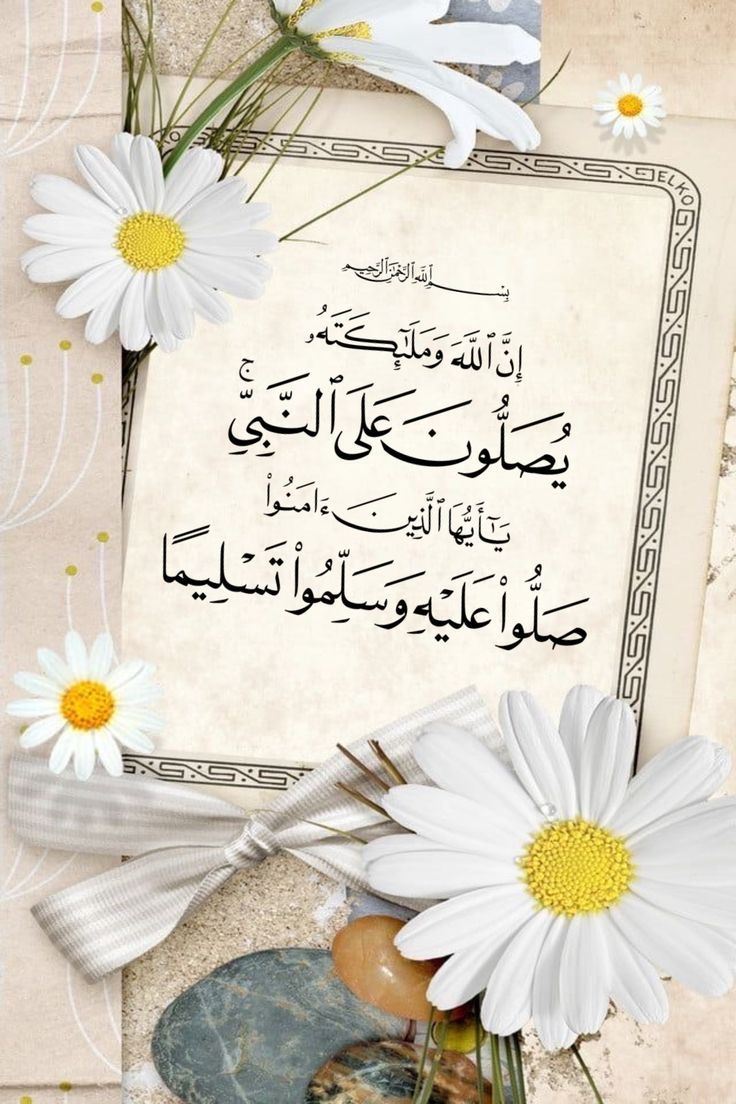 ELKO
بِسْمِ ٱللَّهِ ٱلرَّحْمَٰنِ ٱلرَّحِيمِ
إِنَّ ٱللَّهَ وَمَلَٰٓئِكَتَهُۥ
يُصَلُّونَ عَلَى ٱلنَّبِىِّ ۚ
يَٰٓأَيُّهَا ٱلَّذِينَ ءَامَنُوا۟
صَلُّوا۟ عَلَيْهِ وَسَلِّمُوا۟ تَسْلِيمًا